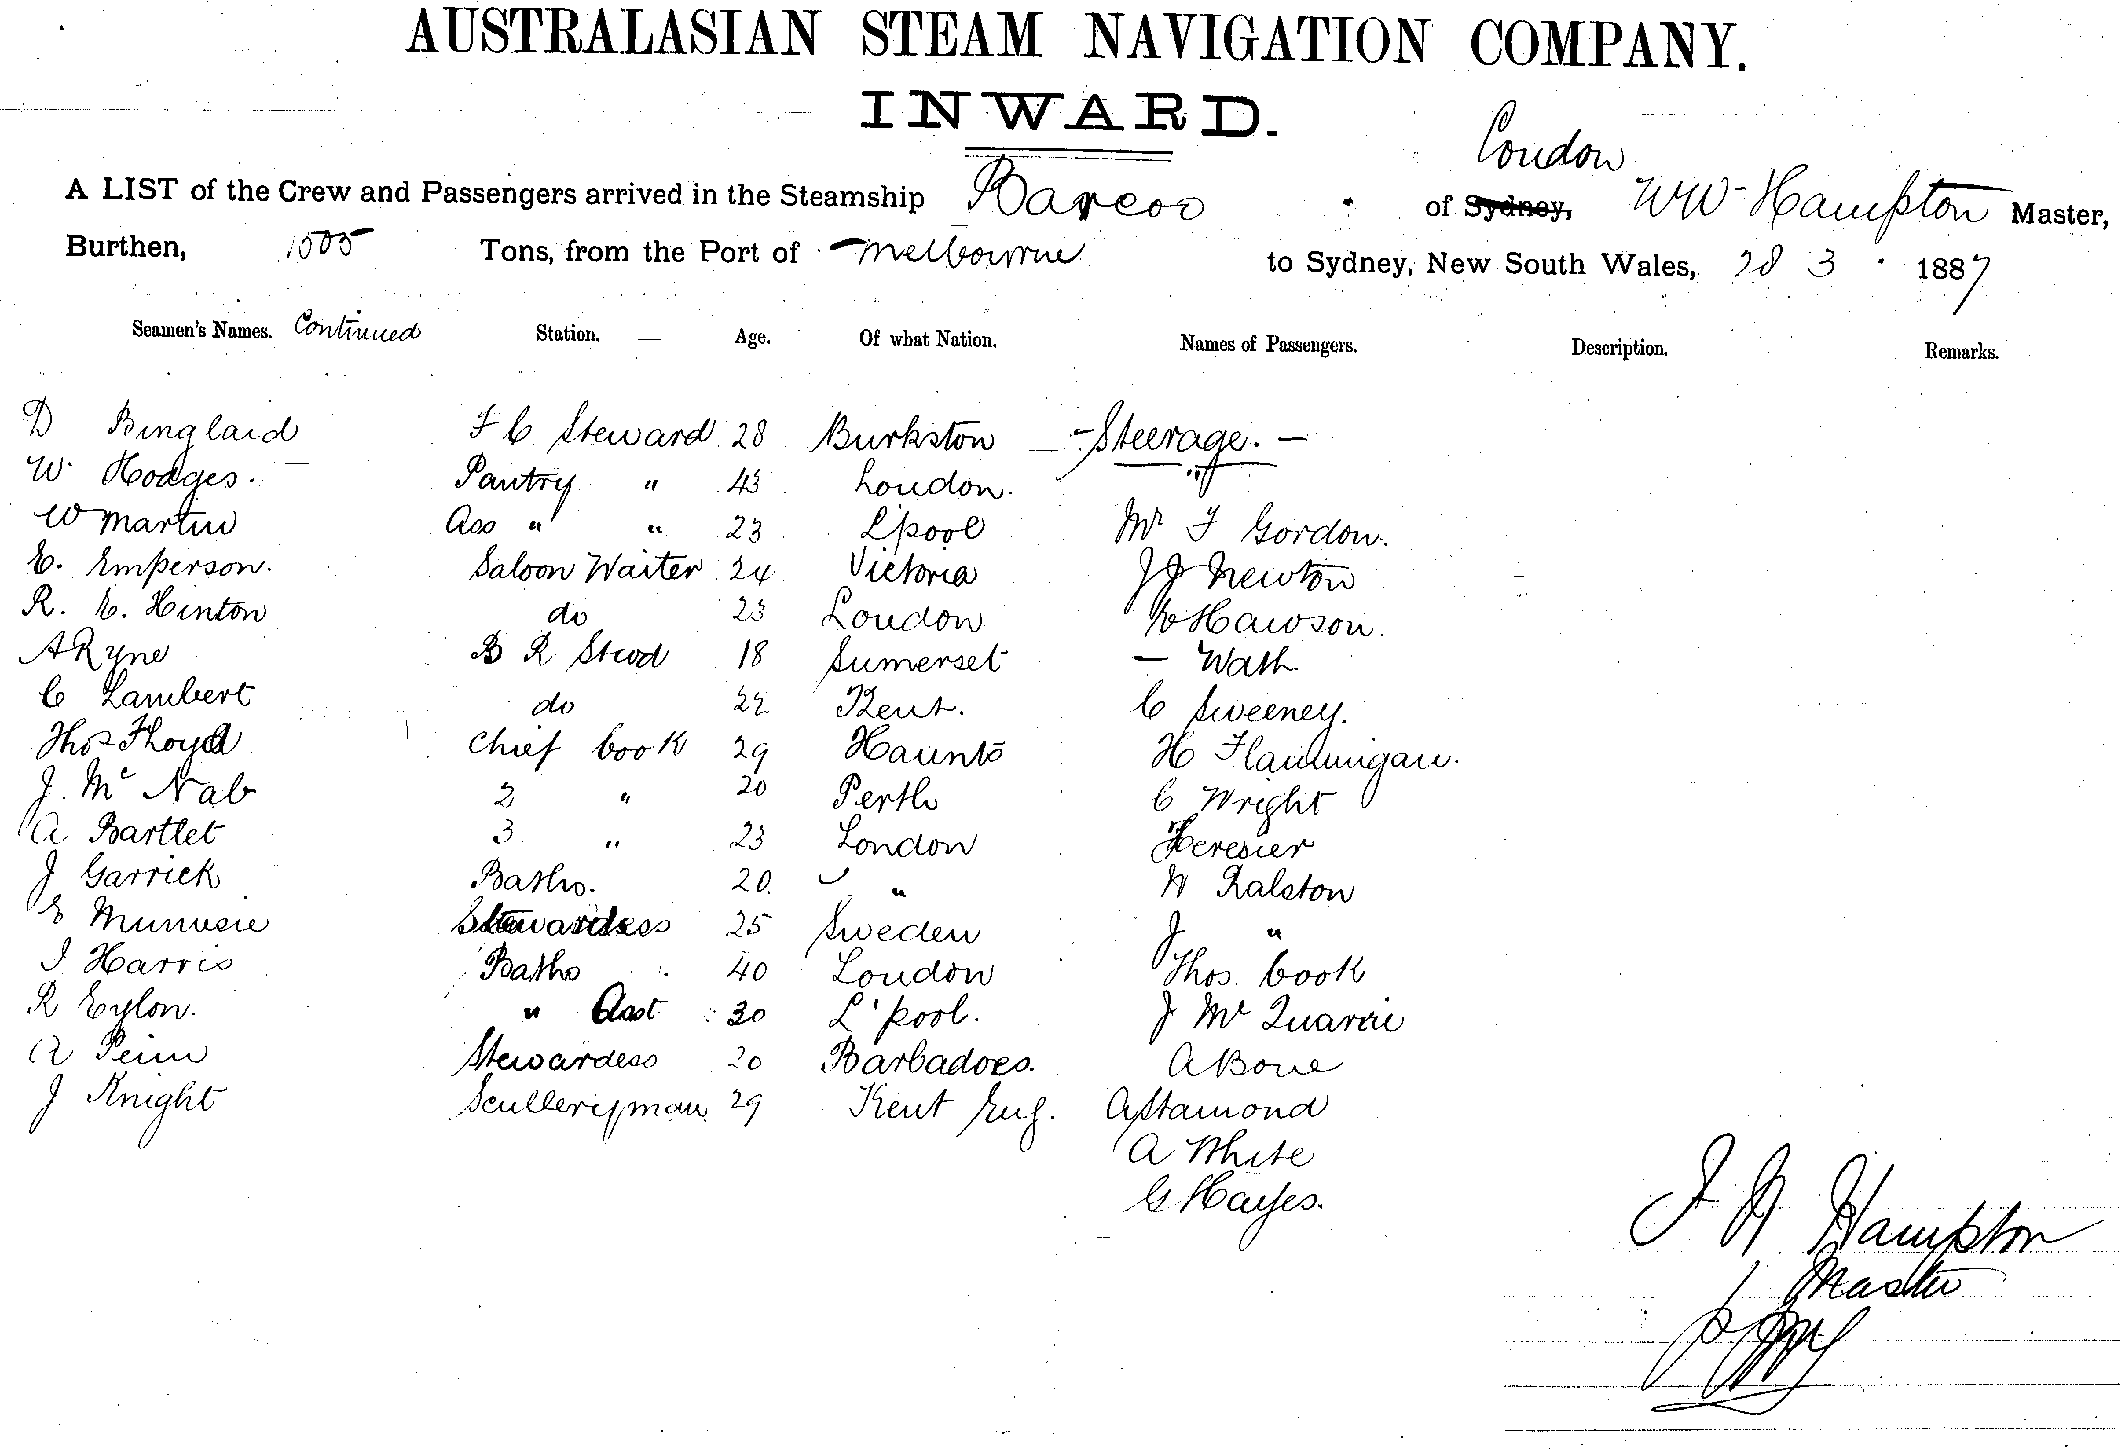 AUSTRALASIAN STEAM NAVIGATION COMPANY.
INWARD.
London
A LIST of the Crew and Passengers arrived in the Steamship Barcoo of Sydney, WW Hampton Master,
Burthen, 1505 Tons, from the Port of Melbourne to Sydney, New South Wales, 28 3 1887
Seamen's Names. Continued Station. Age. Of what Nation. Names of Passengers. Description. Remarks.
D Binglaid F C Steward 28 Burkston - Steerage. -
W. Hodges. Pantry " 43 London. "
W Martin Ass " " 23 L'pool Mr F Gordon.
E. Emperson. Saloon Waiter 24 Victoria JJ Newton
R. E. Hinton do 23 London Hawson.
A Ryne B R Stwd 18 Sumerset - Wath
C Lambert do 22 Kent. C Sweeney.
Thos Floyd Chief Cook 29 Haunts H Flannnigan.
J. Mc Nab 2 " 20 Perth C Wright
A Bartlet 3 " 23 London
J Garrick Baths. 20. " W Ralston
E Stewardess 25 Sweden J "
J Harris Baths 40 London Thos. Cook
R Eylon. " Asst 30 L'pool. J Mc Quarrie
A Penn Stewardess 20 Barbadoes. A Bone
J Knight Sculleryman 29 Kent Eng. A Stamond
A White
G Hayes.
Hampton
Master